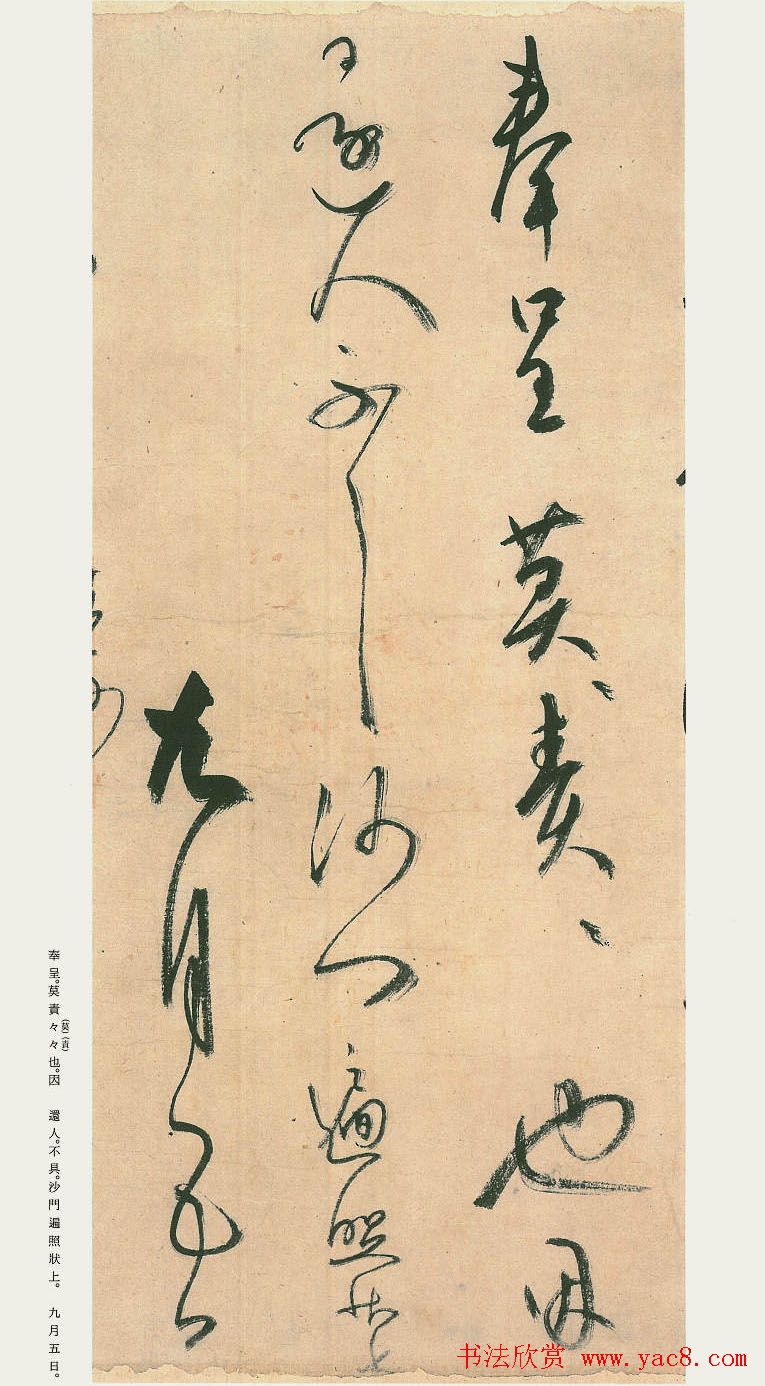 奉呈莫々責々也因
還人不具沙門遍照状上
九月五日
奉呈。莫責々々也。因 還人。不具。沙門遍照狀上。 九月五日。
(莫)(責)
书法欣赏 www.yac8.com